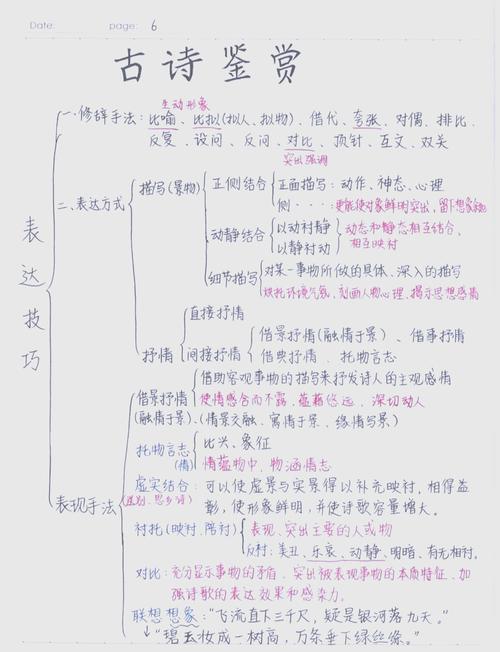 Date: page: 6
古诗鉴赏
生动形象
一.修辞手法：比喻、比拟(拟人、拟物)、借代、夸张、对偶、排比、
反复、设问、反问、对比、顶针、互文、双关
突出强调
表达技巧
二、表达方式
描写(景物)
正侧结合
正面描写：动作、神态、心理
侧 · · · ·：更能使对象鲜明突出，留下想象
动静结合
以动衬静
以静衬动
动态和静态相互结合，
相互映衬
细节描写
对某一事物所做的具体、深入的描写
烘托环境气氛，刻画人物心理，揭示思想感情
抒情
直接抒情
间接抒情
借景抒情(融情于景)、借事抒情
借典抒情、托物言志
表现手法
借景抒情
(融情于景)
借助客观事物的描写来抒发诗人的主观感情
使情感含而不露、蕴藉悠远、深切动人
(情景交融、寓情于景、缘情写景)
托物言志
(情)
比兴、象征
情蕴物中，物涵情志
虚实结合：可以使虚景与实景得以补充映衬，相得益
(送别、思乡诗)
彰，使形象鲜明，并使诗歌容量增大。
衬托(映衬、陪衬)
表现、突出主要的人或物
反衬：美丑、乐哀、动静、明暗、有无相衬。
对比：充分显示事物的矛盾，突出被表现事物的本质特征，加
强诗歌的表达效果和感染力。
联想想象："飞流直下三千尺，疑是银河落九天。"
"碧玉妆成一树高，万条垂下绿丝绦。"